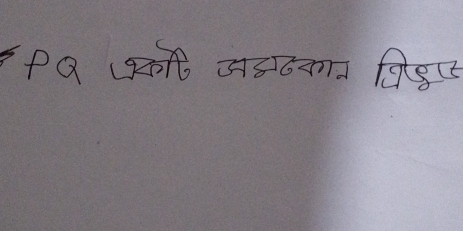 PQ একটি সমকোন ত্রিভুজ